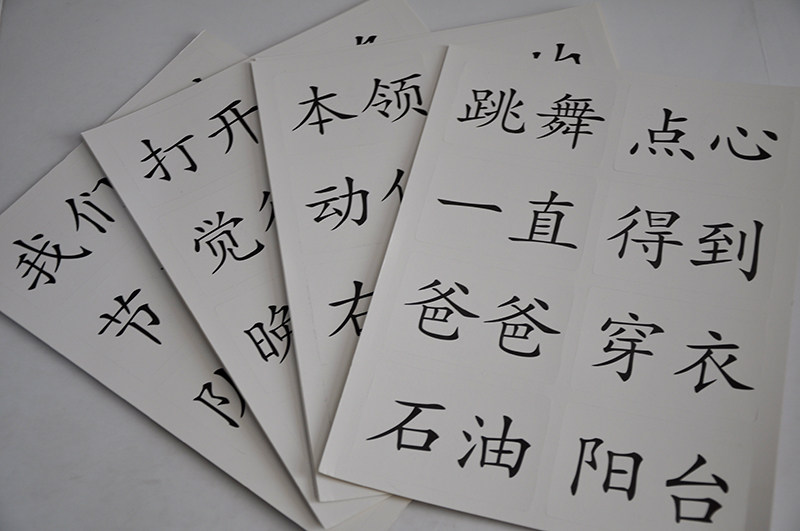 跳舞 点心
一直 得到
爸爸 穿衣
石油 阳台
本领
动
右
打开
觉
晚
我们
节
队